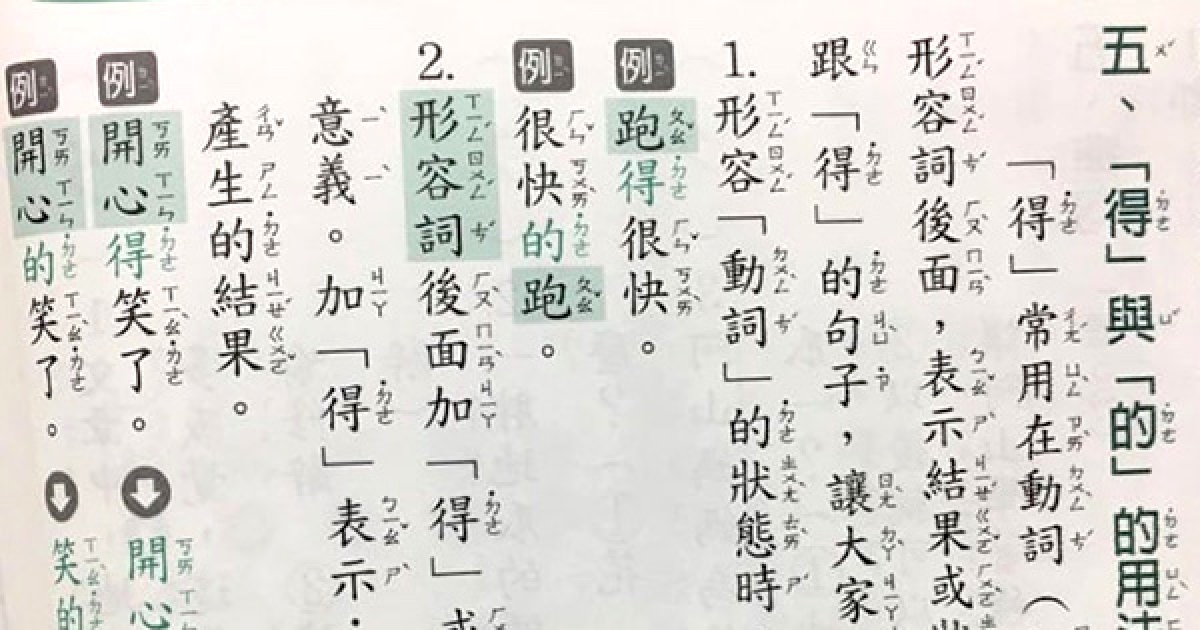 五、「得」與「的」的用法
「得」常用在動詞（
形容詞後面，表示結果或
跟「得」的句子，讓大家
1. 形容「動詞」的狀態時
例 跑得很快。
例 很快的跑。
2. 形容詞後面加「得」或
意義。加「得」表示
產生的結果。
例 開心得笑了。 開心
例 開心的笑了。 笑的